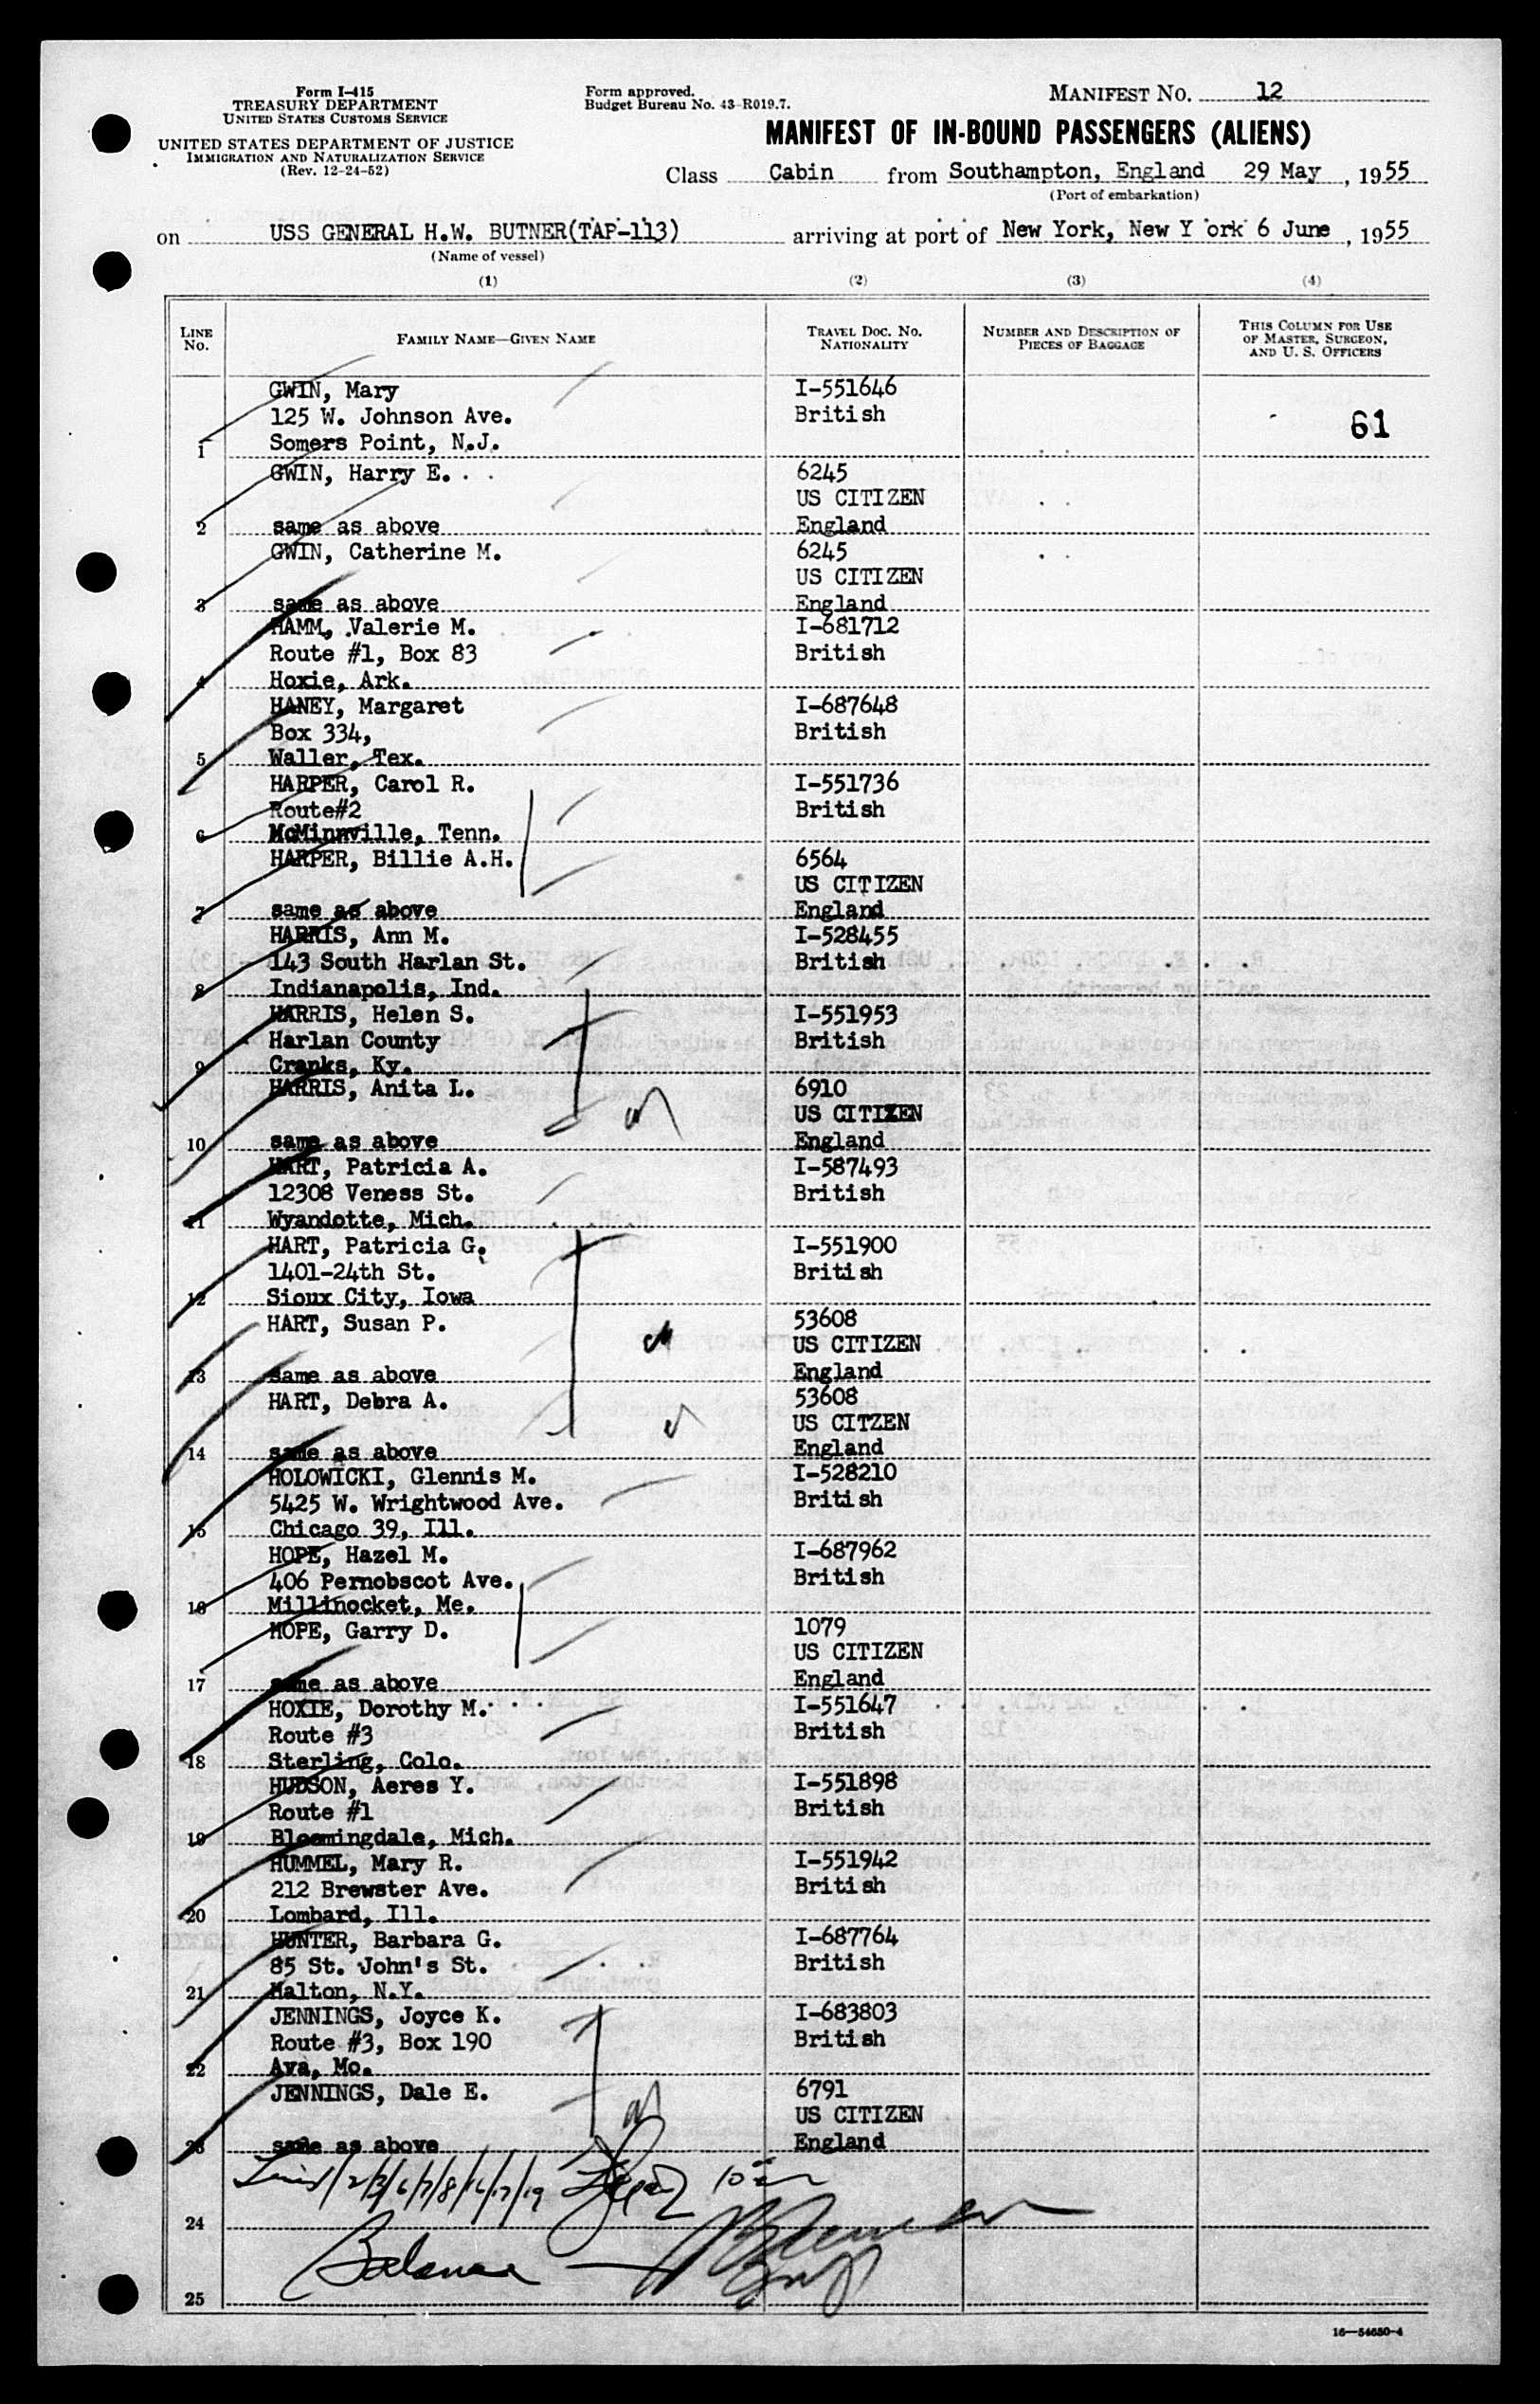 Form I-415
TREASURY DEPARTMENT
UNITED STATES CUSTOMS SERVICE
UNITED STATES DEPARTMENT OF JUSTICE
IMMIGRATION AND NATURALIZATION SERVICE
(Rev. 12-24-52)
Form approved.
Budget Bureau No. 43-R019.7.
MANIFEST NO. 12
MANIFEST OF IN-BOUND PASSENGERS (ALIENS)
Class Cabin from Southampton, England 29 May, 1955
(Port of embarkation)
on USS GENERAL H.W. BUTNER(TAP-113) arriving at port of New York, New Y ork 6 June, 1955
(Name of vessel)
(1) (2) (3) (4)
LINE NO.
FAMILY NAME—GIVEN NAME
TRAVEL DOC. NO. NATIONALITY
NUMBER AND DESCRIPTION OF PIECES OF BAGGAGE
THIS COLUMN FOR USE OF MASTER, SURGEON, AND U. S. OFFICERS
GWIN, Mary I-551646
125 W. Johnson Ave. British 61
1 Somers Point, N.J.
GWIN, Harry E. 6245
US CITIZEN
2 same as above England
GWIN, Catherine M. 6245
US CITIZEN
3 same as above England
HAMM, Valerie M. I-681712
Route #1, Box 83 British
4 Hoxie, Ark.
HANEY, Margaret I-687648
Box 334, British
5 Waller, Tex.
HARPER, Carol R. I-551736
Route#2 British
6 McMinnville, Tenn.
HARPER, Billie A.H. 6564
US CITIZEN
7 same as above England
HARRIS, Ann M. I-528455
143 South Harlan St. British
8 Indianapolis, Ind.
HARRIS, Helen S. I-551953
Harlan County British
9 Cranks, Ky.
HARRIS, Anita L. 6910
US CITIZEN
10 same as above England
HART, Patricia A. I-587493
12308 Veness St. British
11 Wyandotte, Mich.
HART, Patricia G. I-551900
1401-24th St. British
12 Sioux City, Iowa
HART, Susan P. 53608
US CITIZEN
13 same as above England
HART, Debra A. 53608
US CITZEN
14 same as above England
HOLOWICKI, Glennis M. I-528210
5425 W. Wrightwood Ave. British
15 Chicago 39, Ill.
HOPE, Hazel M. I-687962
406 Pernobscot Ave. British
16 Millinocket, Me.
HOPE, Garry D. 1079
US CITIZEN
17 same as above England
HOXIE, Dorothy M. I-551647
Route #3 British
18 Sterling, Colo.
HUDSON, Aeres Y. I-551898
Route #1 British
19 Bloomingdale, Mich.
HUMMEL, Mary R. I-551942
212 Brewster Ave. British
20 Lombard, Ill.
HUNTER, Barbara G. I-687764
85 St. John's St. British
21 Malton, N.Y.
JENNINGS, Joyce K. I-683803
Route #3, Box 190 British
22 Ava, Mo.
JENNINGS, Dale E. 6791
US CITIZEN
23 same as above England
Lines 1/2/3/6/7/8/16/17/19
24
Balance
25
16—54650-4